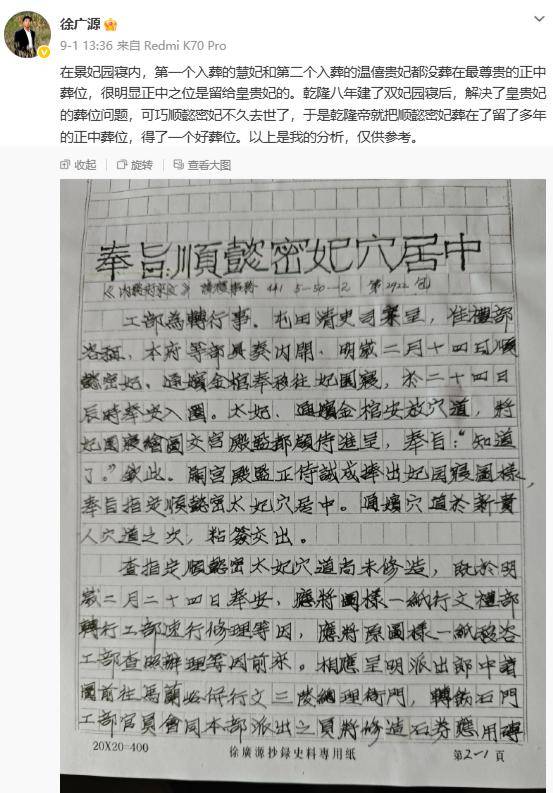 徐广源
9-1 13:36 来自 Redmi K70 Pro
在景妃园寝内，第一个入葬的慧妃和第二个入葬的温僖贵妃都没葬在最尊贵的正中
葬位，很明显正中之位是留给皇贵妃的。乾隆八年建了双妃园寝后，解决了皇贵妃
的葬位问题，可巧顺懿密妃不久去世了，于是乾隆帝就把顺懿密妃葬在了留了多年
的正中葬位，得了一个好葬位。以上是我的分析，仅供参考。
收起 旋转 查看大图
奉旨順懿密妃穴居中
《内務府来文》 441 5-50-2 第2922包
工部為轉行事。屯田清吏司案呈，准禮部
咨稱，本府等部具奏内開，明歲二月十四日順
懿密妃、通嬪金棺奉移往妃園寢，於二十四日
辰時奉安入圈。太妃、通嬪金棺安放穴道，將
妃園寢繪圖交宫殿監都領侍進呈，奉旨："知道
了。"欽此。閣宫殿監正侍誠成捧出妃园寢圖樣，
奉旨指定順懿密太妃穴居中。通嬪穴道於新貴
人穴道之次，粘簽交出。
查指定順懿密太妃穴道尚未修造，既於明
歲二月二十四日奉安，應將圖樣一紙行文禮部
轉行工部速行修理等因，應將原圖樣一紙移咨
工部查照辦理等因前来。相應呈明派出郎中諸
圖前往馬蘭峪併行文三陵總理衙門，轉飭石門
工部官員會同本部派出之員將修造石券應用磚
20X20=400 徐廣源抄録史料專用紙 第2-1頁